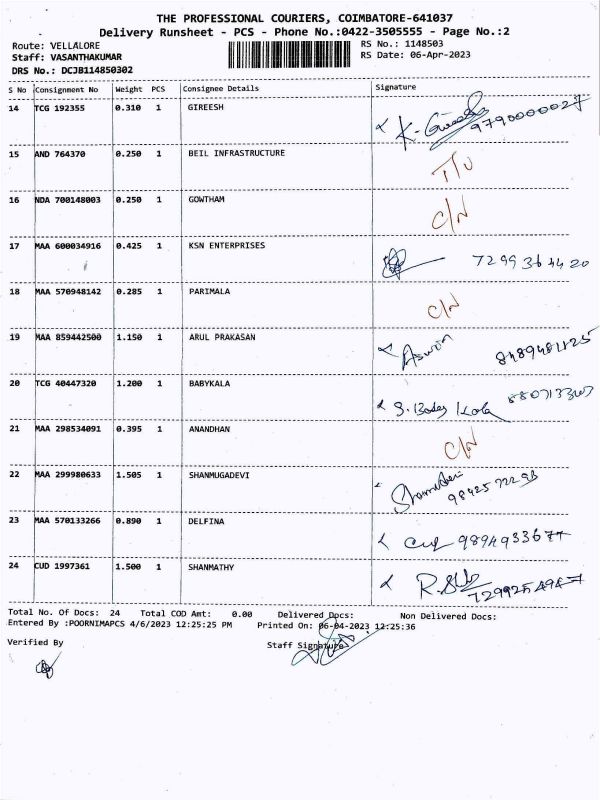 THE PROFESSIONAL COURIERS, COIMBATORE-641037
Delivery Runsheet - PCS - Phone No.:0422-3505555 - Page No.:2
Route: VELLALORE RS No.: 1148503
Staff: VASANTHAKUMAR RS Date: 06-Apr-2023
DRS No.: DCJB114850302
S No Consignment No Weight PCS Consignee Details Signature
14 TCG 192355 0.310 1 GIREESH 9790000027
15 AND 764370 0.250 1 BEIL INFRASTRUCTURE T/U
16 NDA 700148003 0.250 1 GOWTHAM C/N
17 MAA 600034916 0.425 1 KSN ENTERPRISES 7299364420
18 MAA 570948142 0.285 1 PARIMALA C/N
19 MAA 859442500 1.150 1 ARUL PRAKASAN Aswin
20 TCG 40447320 1.200 1 BABYKALA
21 MAA 298534091 0.395 1 ANANDHAN C/N
22 MAA 299980633 1.505 1 SHANMUGADEVI
23 MAA 570133266 0.890 1 DELFINA 9894933677
24 CUD 1997361 1.500 1 SHANMATHY
Total No. Of Docs: 24 Total COD Amt: 0.00 Delivered Docs: Non Delivered Docs:
Entered By :POORNIMAPCS 4/6/2023 12:25:25 PM Printed On: 06-04-2023 12:25:36
Verified By Staff Signature